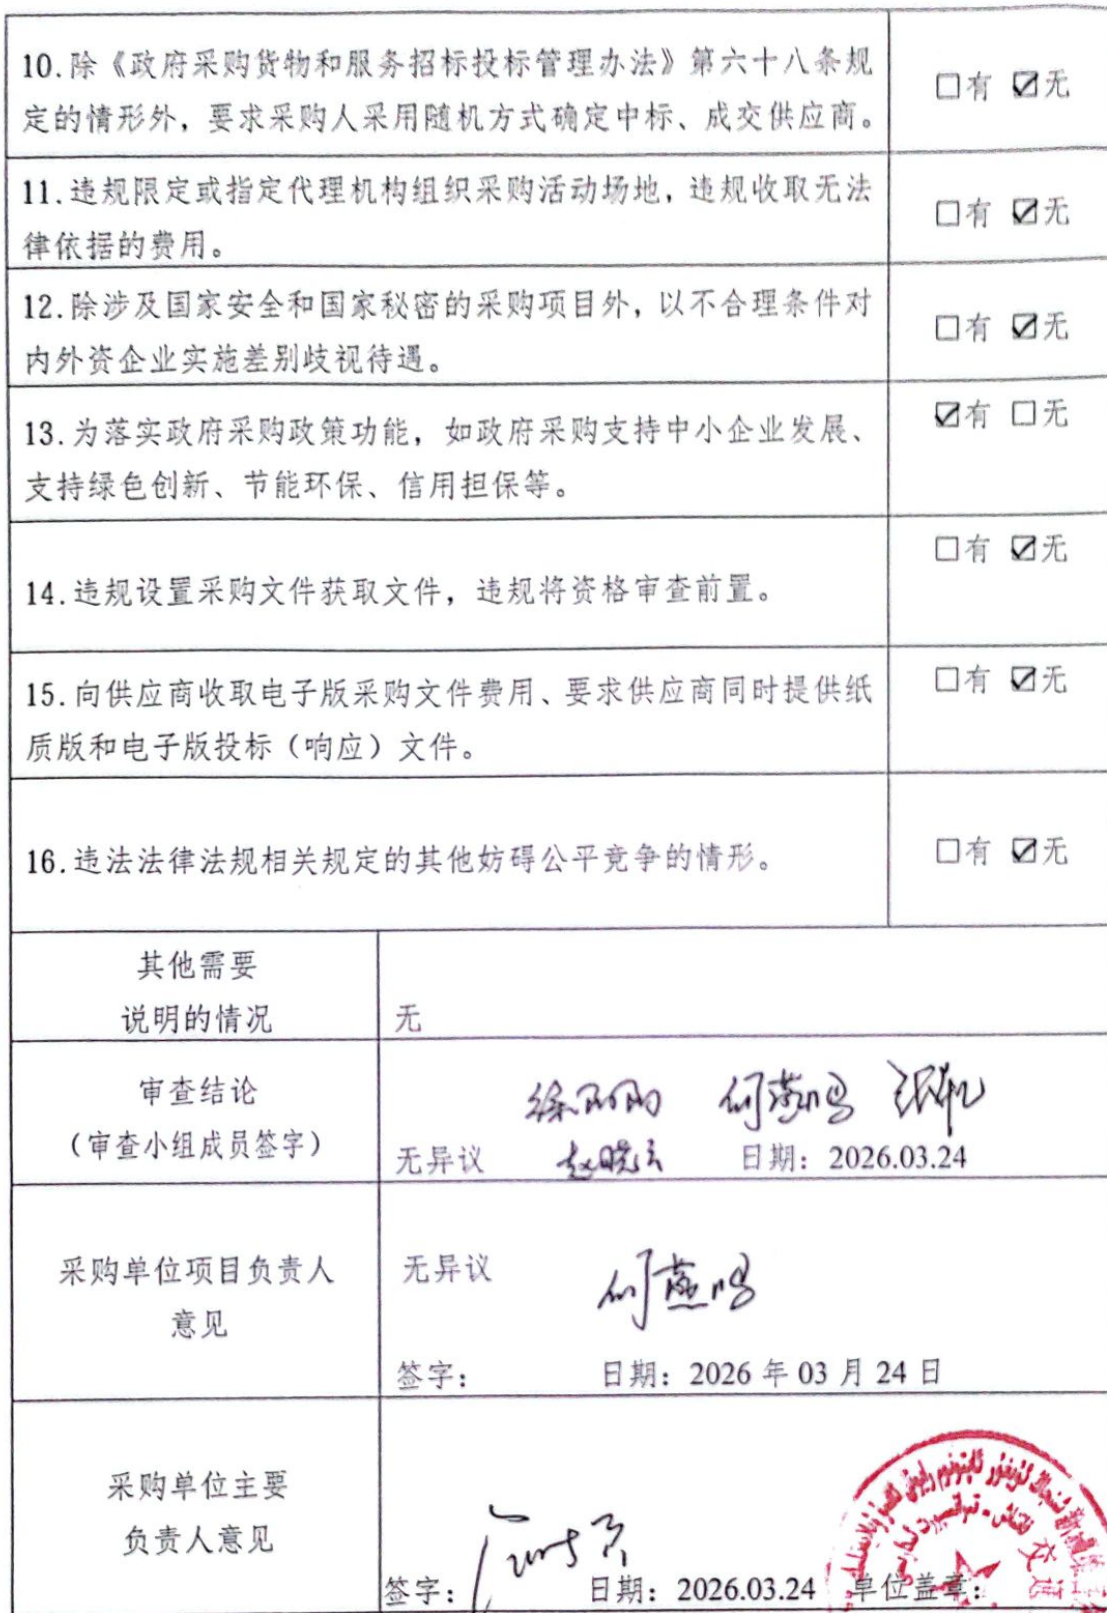 10.除《政府采购货物和服务招标投标管理办法》第六十八条规
定的情形外，要求采购人采用随机方式确定中标、成交供应商。
☐有 ☑无
11.违规限定或指定代理机构组织采购活动场地，违规收取无法
律依据的费用。
☐有 ☑无
12.除涉及国家安全和国家秘密的采购项目外，以不合理条件对
内外资企业实施差别歧视待遇。
☐有 ☑无
13.为落实政府采购政策功能，如政府采购支持中小企业发展、
支持绿色创新、节能环保、信用担保等。
☑有 ☐无
14.违规设置采购文件获取文件，违规将资格审查前置。
☐有 ☑无
15.向供应商收取电子版采购文件费用、要求供应商同时提供纸
质版和电子版投标（响应）文件。
☐有 ☑无
16.违法法律法规相关规定的其他妨碍公平竞争的情形。
☐有 ☑无
其他需要
说明的情况
无
审查结论
（审查小组成员签字）
无异议 日期：2026.03.24
采购单位项目负责人
意见
无异议
签字： 日期：2026 年 03 月 24 日
采购单位主要
负责人意见
签字： 日期：2026.03.24 单位盖章：